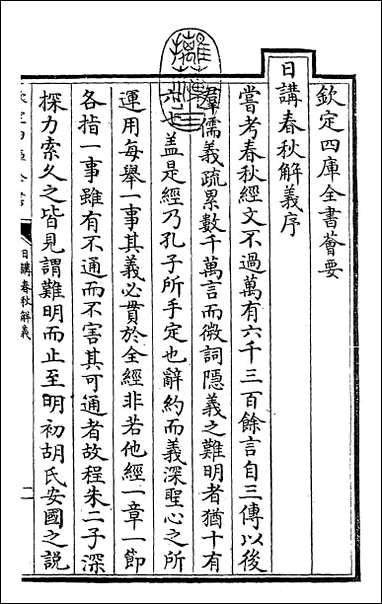 欽定四庫全書薈要
日講春秋解義序
嘗考春秋經文不過萬有六千三百餘言自三傳以後
羣儒義疏累數千萬言而微詞隱義之難明者猶十有
六七蓋是經乃孔子所手定也辭約而義深聖心之所
運用每舉一事其義必貫於全經非若他經一章一節
各指一事雖有不通而不害其可通者故程朱二子深
探力索久之皆見謂難明而止至明初胡氏安國之說
日講春秋解義